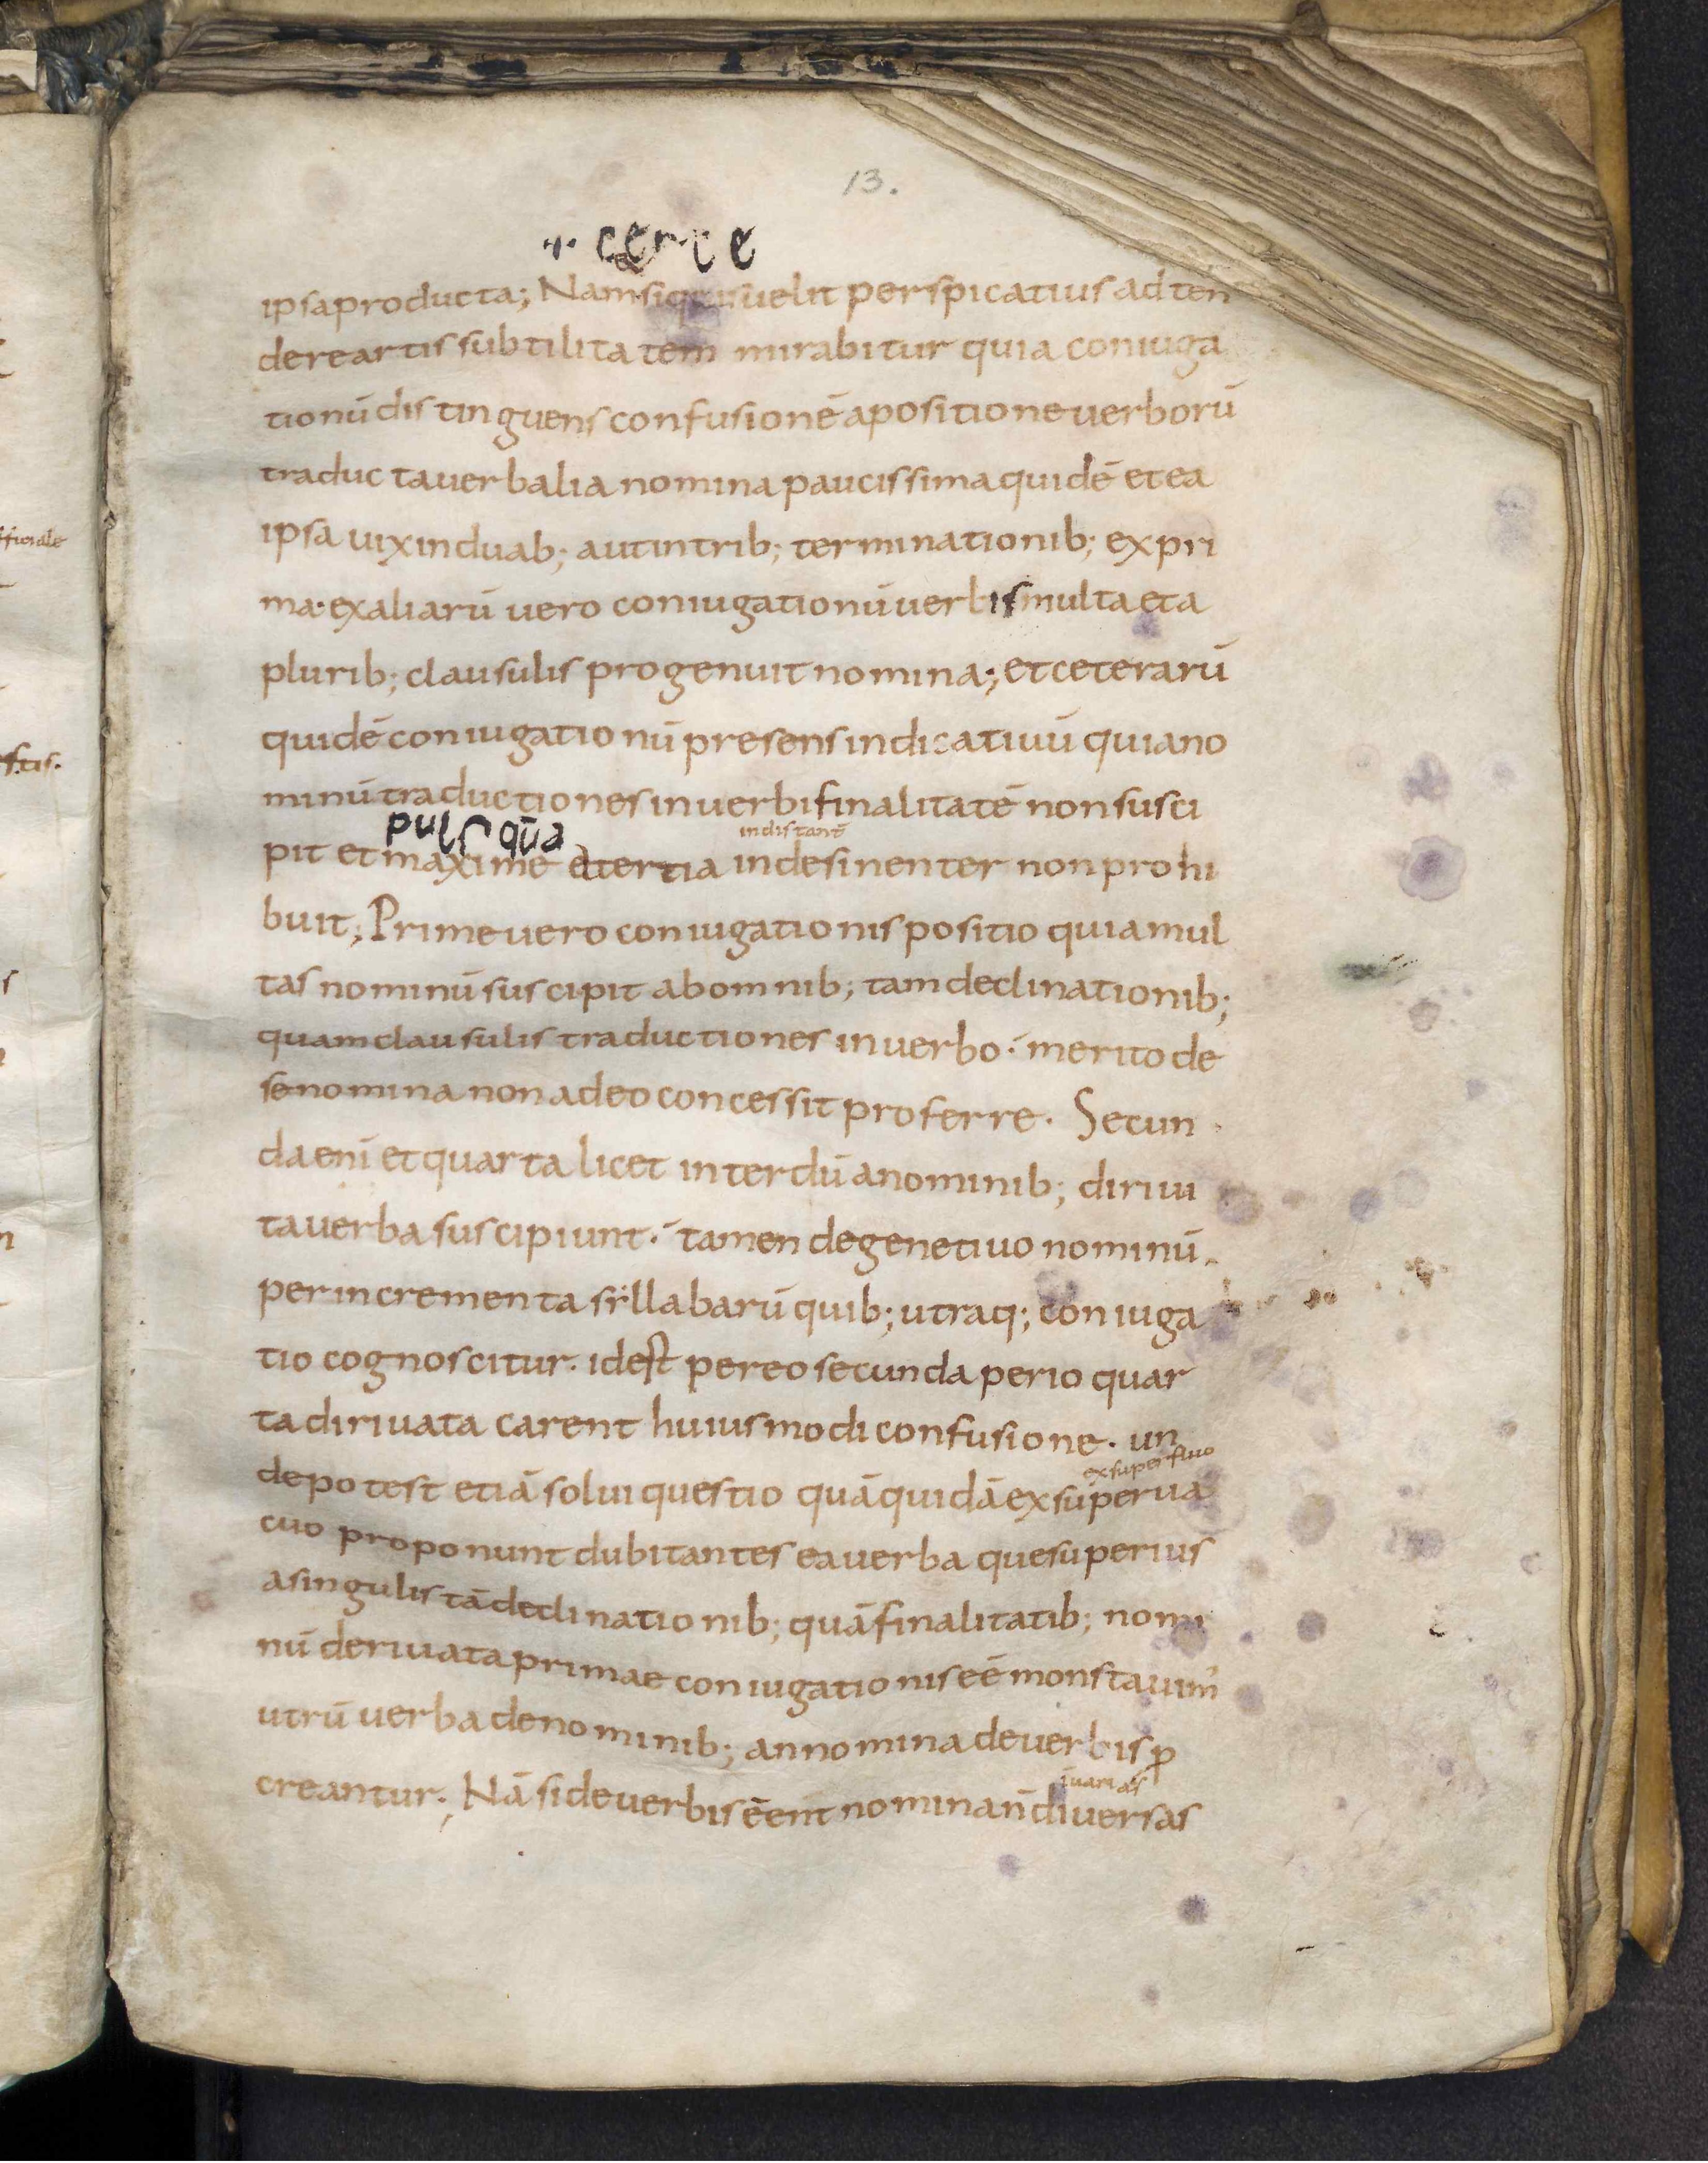 13.
·i· certe
ipsa producta; Nam si quis uelit perspicatius adten
dere artis subtilitatem mirabitur quia coniuga
tionū distinguens confusionē apositione uerborū
traducta uerbalia nomina paucissima quidē et ea
ipsa uix in duab; aut in trib; terminationib; ex pri
ma· ex aliarū uero coniugationū uerbis multa et a
plurib; clausulis progenuit nomina; et ceterarū
quidē coniugationū presens indicatiuū quia no
minū traductiones in uerbi finalitatē non susci
puls quā
indistant̄
pit et maxime e tertia indesinenter non prohi
buit; Prime uero coniugationis positio quia mul
tas nominū suscipit ab omnib; tam declinationib;
quam clausulis traductiones in uerbo· merito de
se nomina non adeo concessit proferre. Secun
da enī et quarta licet interdū a nominib; diriui
ta uerba suscipiunt· tamen de genetiuo nominū
per incrementa sẏllabarū quib; utraq; coniuga
tio cognoscitur· idest per eo secunda per io quar
ta diriuata carent huiusmodi confusione. un
ex superfluo
de potest etiā solui questio quā quidā ex superua
cuo proponunt dubitantes ea uerba que superius
a singulis tā declinationib; quā finalitatib; nomi
nū deriuata primae coniugationis eē monstauim'
utrū uerba de nominib; an nomina de uerbis ꝓ
creantur; Nā si de uerbis eēnt nomina n̄ diuersas